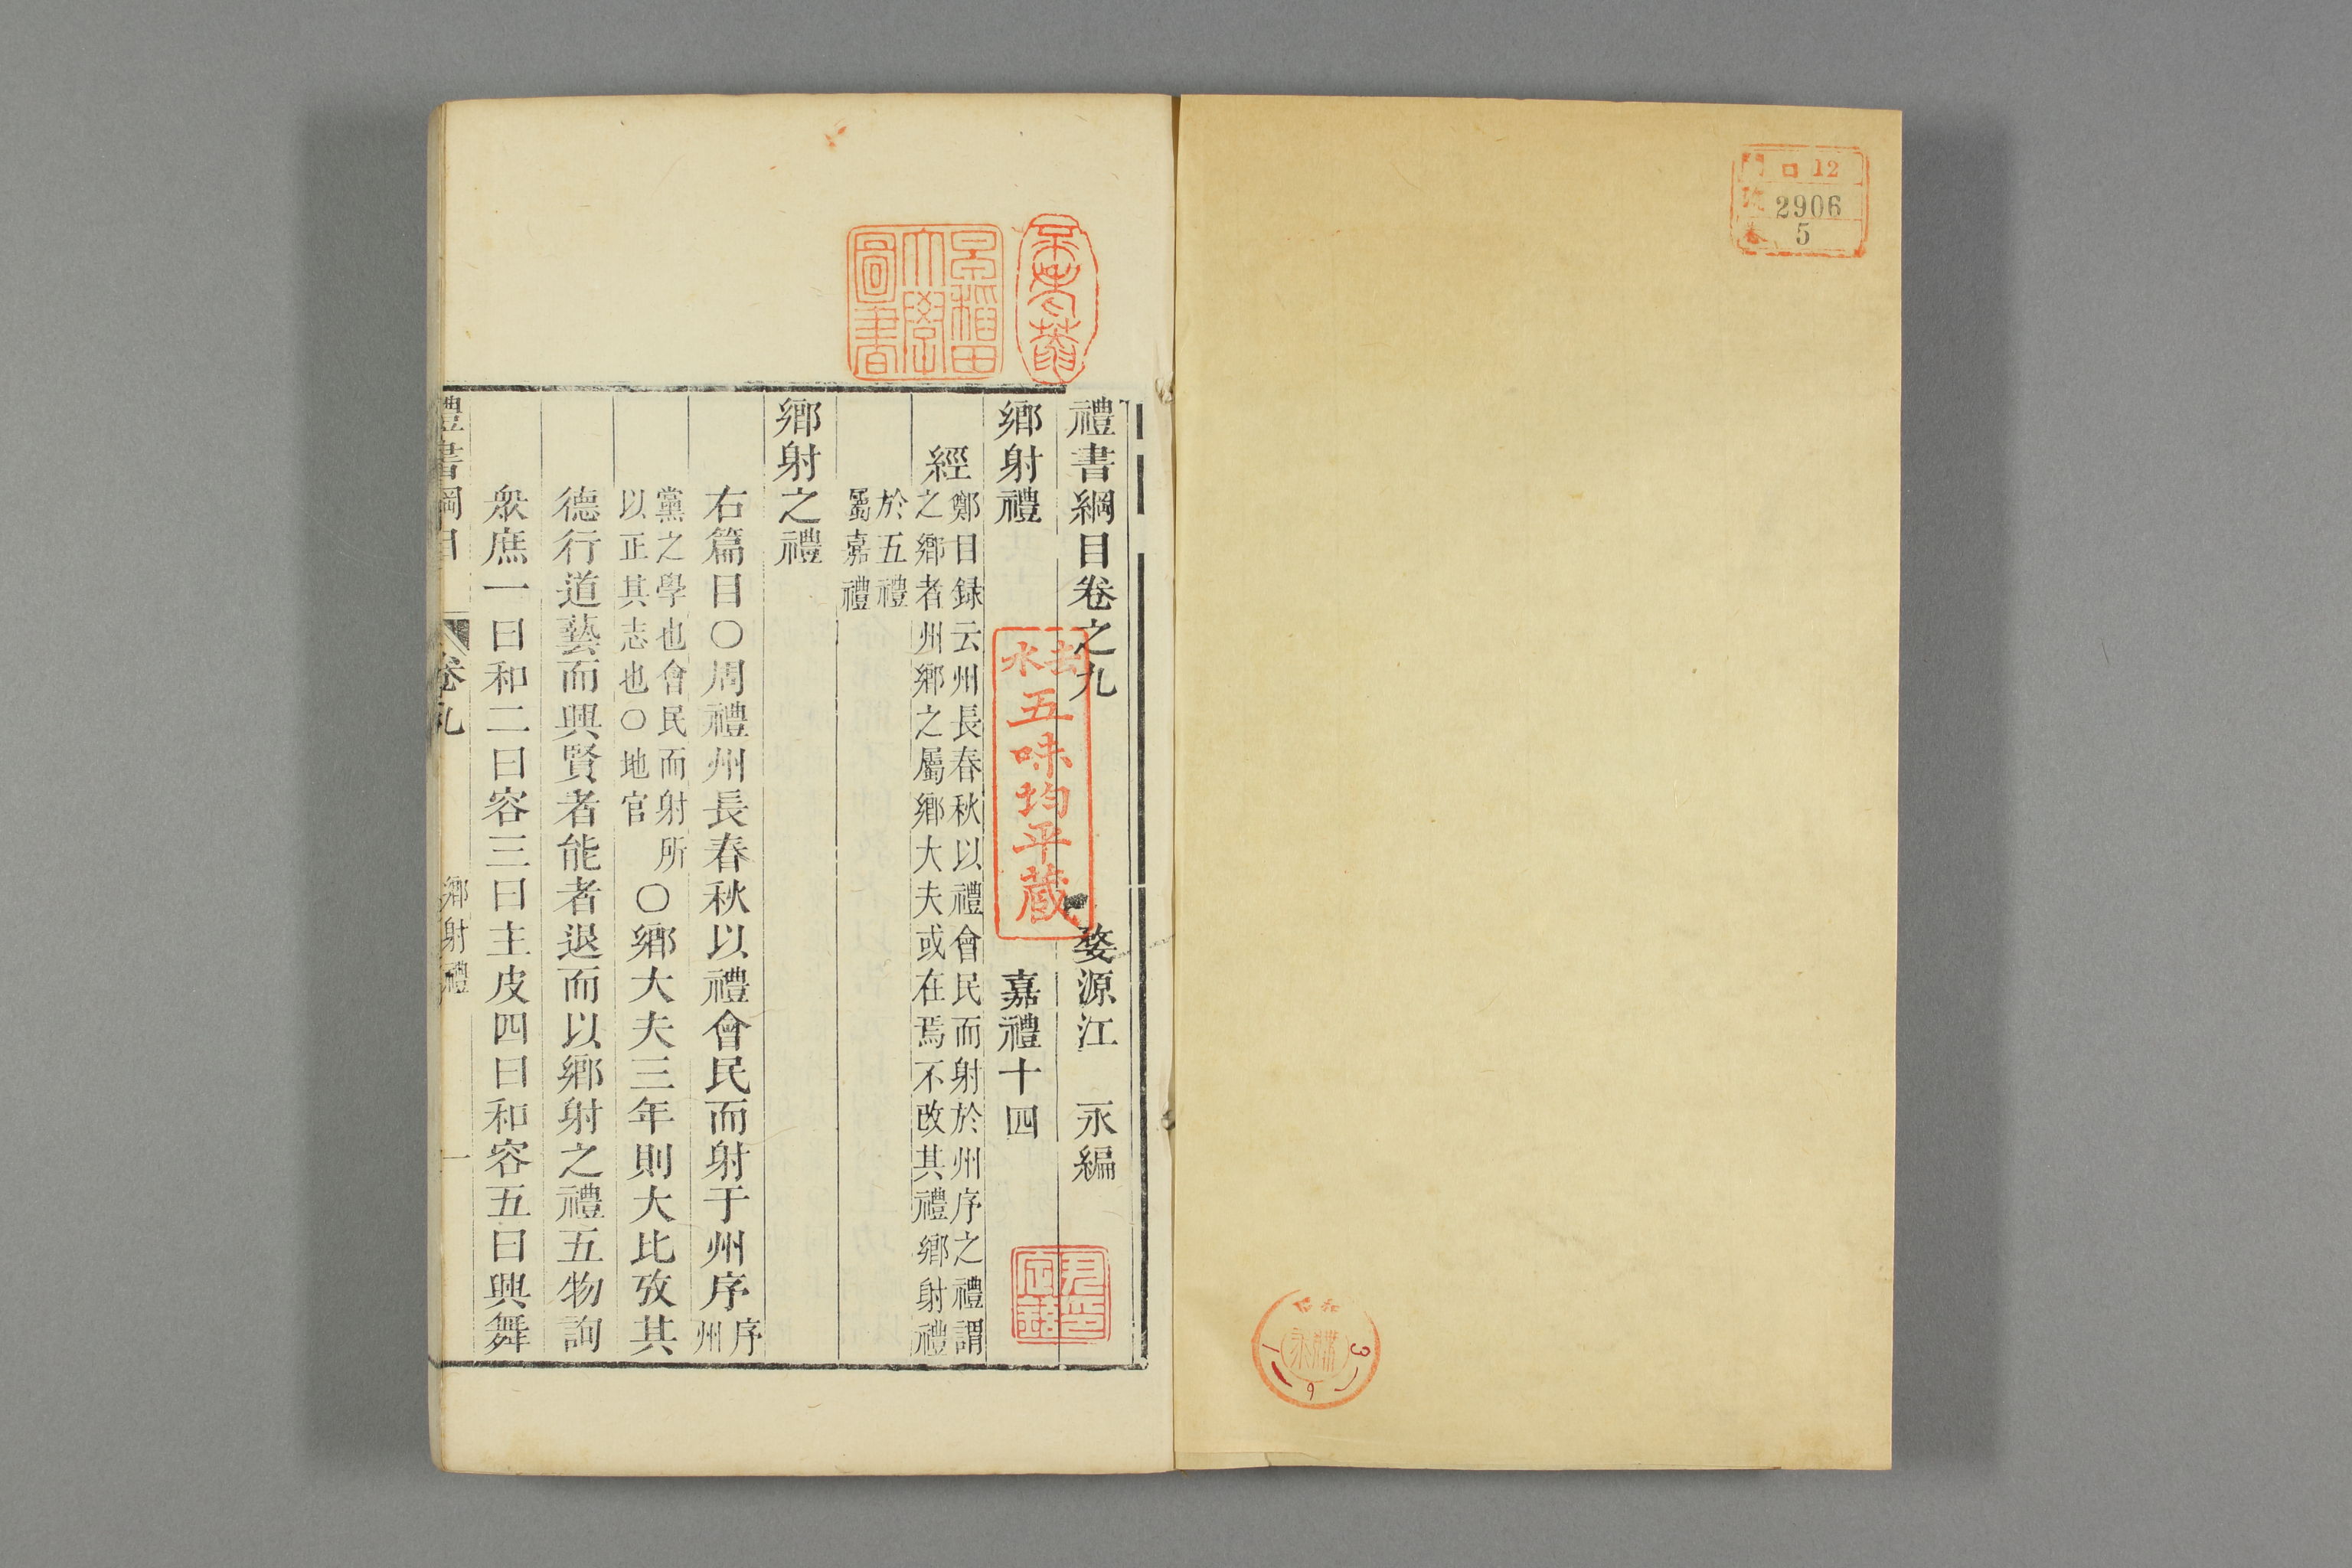 口 12
2906
5
禮書綱目卷之九 婺源江 永編
鄉射禮 嘉禮十四
經 鄭目録云州長春秋以禮會民而射於州序之禮謂
之鄉者州鄉之屬鄉大夫或在焉不改其禮鄉射禮
於五禮
屬嘉禮
鄉射之禮
右篇目○周禮州長春秋以禮會民而射于州序 序州
黨之學也會民而射所
以正其志也○地官
○鄉大夫三年則大比攷其
德行道藝而興賢者能者退而以鄉射之禮五物詢
衆庶一曰和二曰容三曰主皮四曰和容五曰興舞
禮書綱目 卷九 鄉射禮 一
早稻田
大學
圖書
五味均平蔵